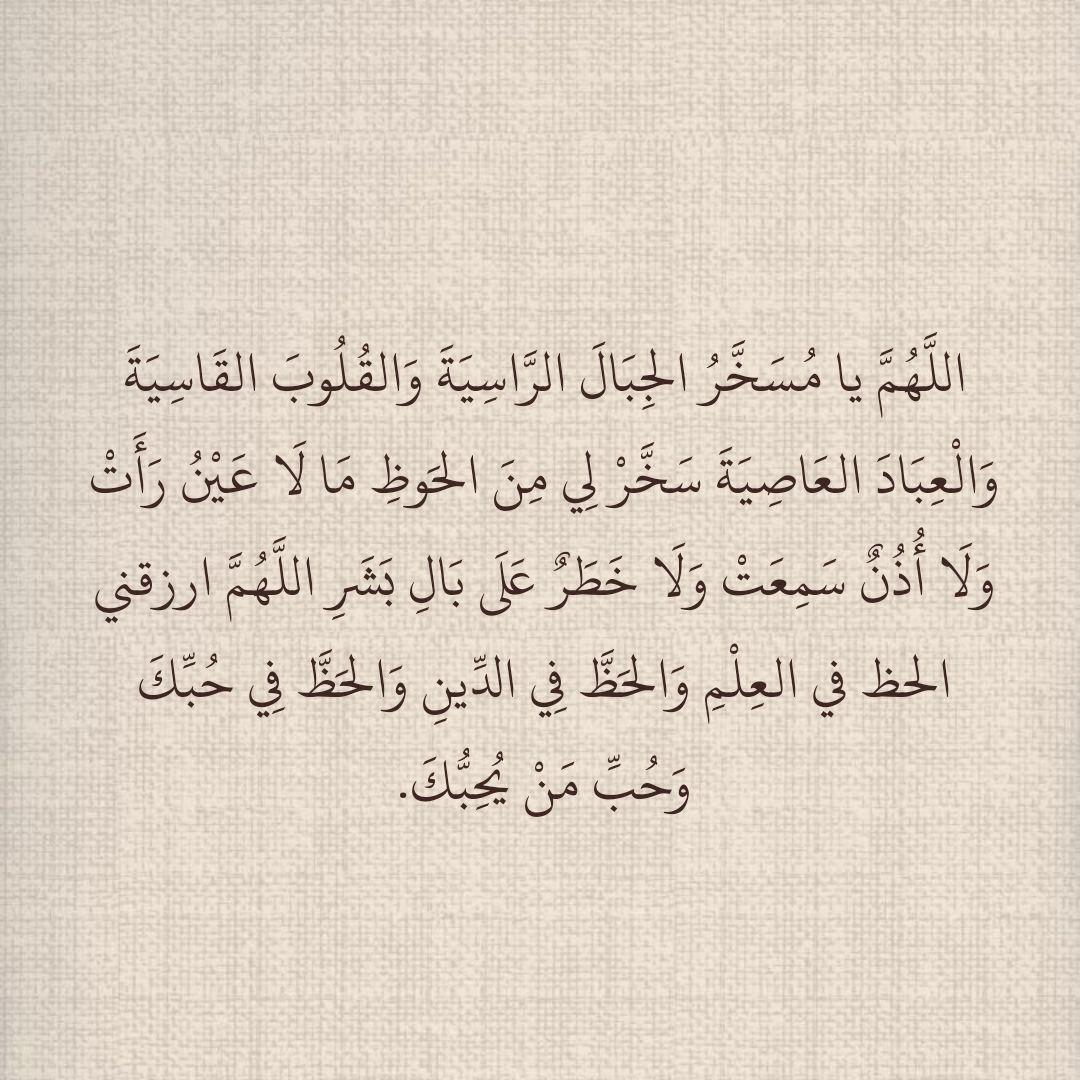 اللَّهُمَّ يا مُسَخَّرُ الجِبَالَ الرَّاسِيَةَ وَالقُلُوبَ القَاسِيَةَ
وَالْعِبَادَ العَاصِيَةَ سَخَّرْ لِي مِنَ الحَوظِ مَا لَا عَيْنُ رَأَتْ
وَلَا أُذُنٌ سَمِعَتْ وَلَا خَطَرٌ عَلَى بَالِ بَشَرِ اللَّهُمَّ ارزقني
الحظ في العِلْمِ وَالحَظَّ فِي الدِّينِ وَالحَظَّ فِي حُبِّكَ
وَحُبِّ مَنْ يُحِبُّكَ.